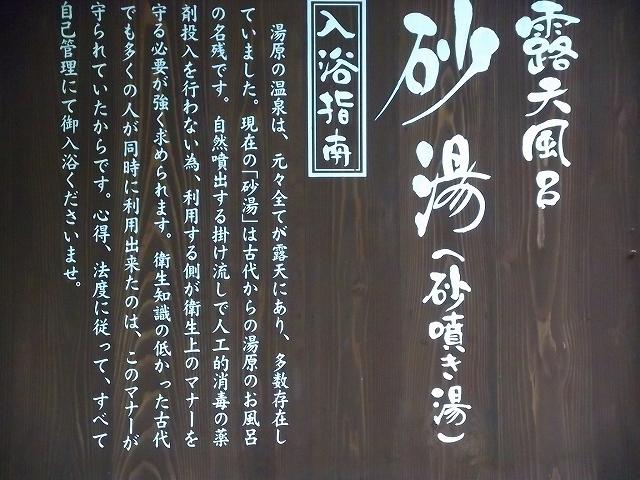 露天風呂
砂湯(砂噴き湯)
入浴指南
湯原の温泉は、元々全てが露天にあり、多数存在し
ていました。現在の「砂湯」は古代からの湯原のお風呂
の名残です。自然噴出する掛け流しで人工的消毒の薬
剤投入を行わない為、利用する側が衛生上のマナーを
守る必要が強く求められます。衛生知識の低かった古代
でも多くの人が同時に利用出来たのは、このマナーが
守られていたからです。心得、法度に従って、すべて
自己管理にて御入浴くださいませ。